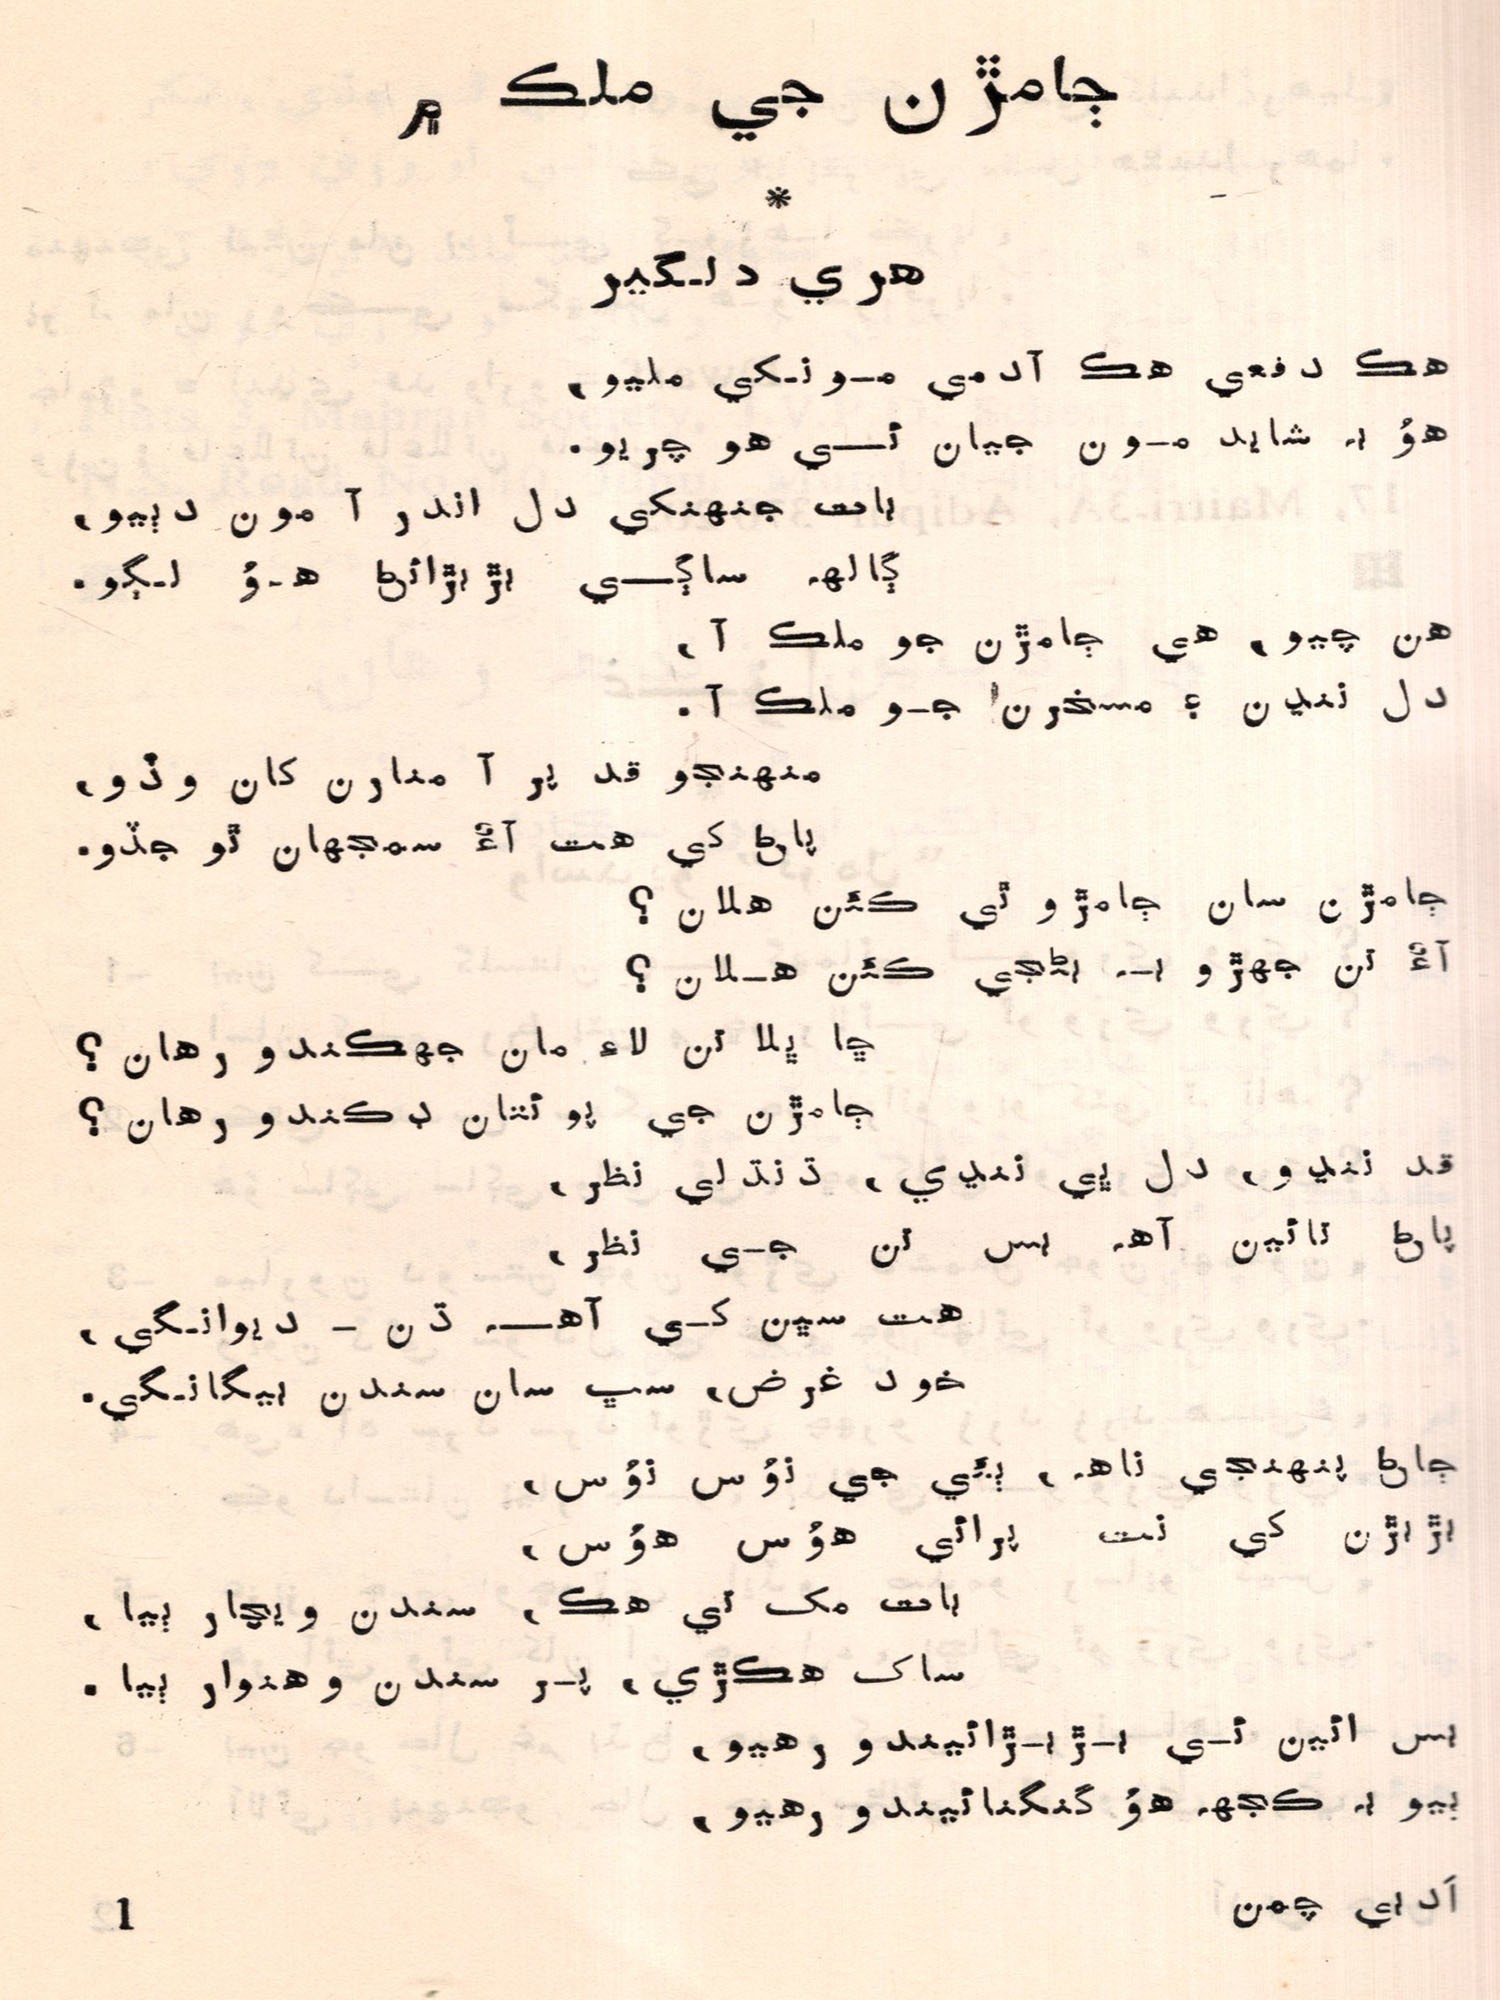 ڄامڙن جي ملڪ ۾
*
هري دلگير
هڪ دفعي هڪ آدمي مونکي مليو،
هوُ بہ شايد مون جيان ئي هو چريو.
بات جنهنکي دل اندر آ مون ڏٻيو،
ڳالهہ ساڳي ٻڙٻڙائڻ هوُ لڳو.
هن چيو، هي ڄامڙن جو ملڪ آ،
دل ننڍن ۽ مسخرن جو ملڪ آ.
منهنجو قد پر آ منارن کان وڏو،
پاڻ کي هت آءٌ سمجهان ٿو جڏو.
ڄامڙن سان ڄامڙو ٿي ڪئن هلان ؟
آءٌ تن جهڙو بہ بڻجي ڪئن هلان ؟
ڇا ڀلا تن لاءِ مان جهڪندو رهان ؟
ڄامڙن جي پوئتان ڊڪندو رهان ؟
قد ننڍو، دل ڀي ننڍي، ڌنڌلي نظر،
پاڻ تائين آهہ بس تن جي نظر،
هت سڀن کي آهہ ڌن - ديوانگي،
خود غرض، سڀ سان سندن بيگانگي.
ڄاڻ پنهنجي ناهہ، ٻئي جي نوُس نوُس،
ٻڙٻڙن کي نت پرائي هوُس هوُس،
بات مک تي هڪ، سندن ويچار ٻيا،
ساک هڪڙي، پر سندن وهنوار ٻيا.
بس ائين ئي ٻڙٻڙائيندو رهيو،
ٻيو بہ ڪجهہ هوُ گنگنائيندو رهيو،
اَدبي چمن
1